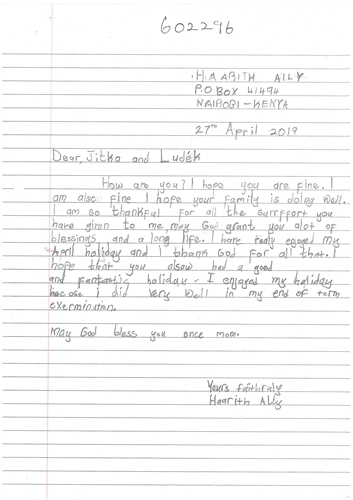 602296
HAARITH ALLY
P.O BOX 41494
NAIROBI-KENYA
27th April 2019
Dear, Jitka and Luděk
How are you? I hope you are fine. I
am also fine I hope your family is doing well.
I am so thankful for all the surpport you
have giren to me may God grant you alot of
blessings and a long life. I have realy enjoyed my
April holiday and I thank God for all that. I
hope that you alsow had a good
and fantastic holiday - I enjoyed my holiday
becose i did very well in my end of term
exermination.
May God bless you once more.
Yours faithfuly
Haarith Ally